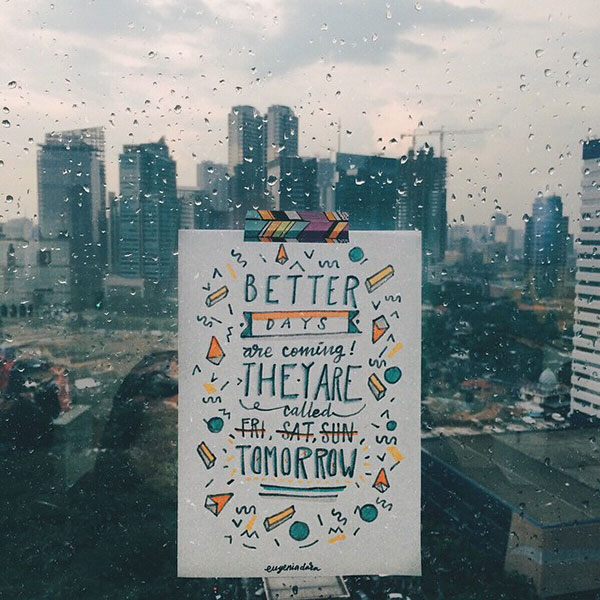 BETTER
DAYS
are coming!
THEY ARE
called
FRI, SAT, SUN
TOMORROW
eugeniadara